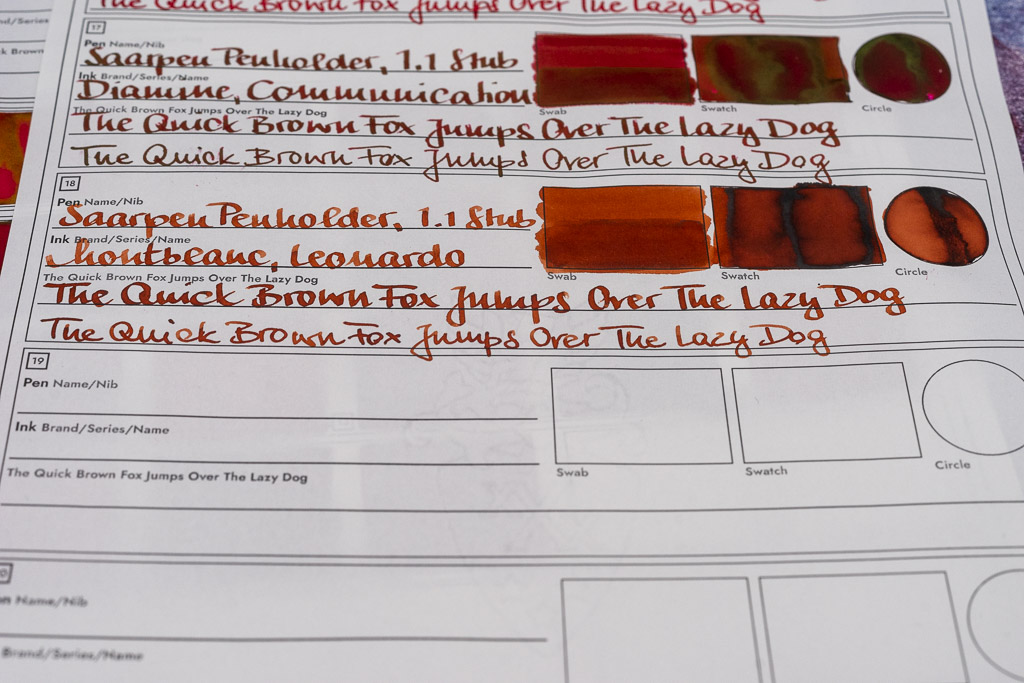 The Quick Brown Fox Jumps Over The Lazy Dog
17
Pen Name/Nib
Saarpen Penholder, 1.1 Stub
Ink Brand/Series/Name
Diamine, Communication
Swab Swatch Circle
The Quick Brown Fox Jumps Over The Lazy Dog
The Quick Brown Fox Jumps Over The Lazy Dog
The Quick Brown Fox Jumps Over The Lazy Dog
18
Pen Name/Nib
Saarpen Penholder, 1.1 Stub
Ink Brand/Series/Name
Montblanc, Leonardo
Swab Swatch Circle
The Quick Brown Fox Jumps Over The Lazy Dog
The Quick Brown Fox Jumps Over The Lazy Dog
The Quick Brown Fox Jumps Over The Lazy Dog
19
Pen Name/Nib
Ink Brand/Series/Name
The Quick Brown Fox Jumps Over The Lazy Dog
Swab Swatch Circle
Name/Nib
Brand/Series/Name